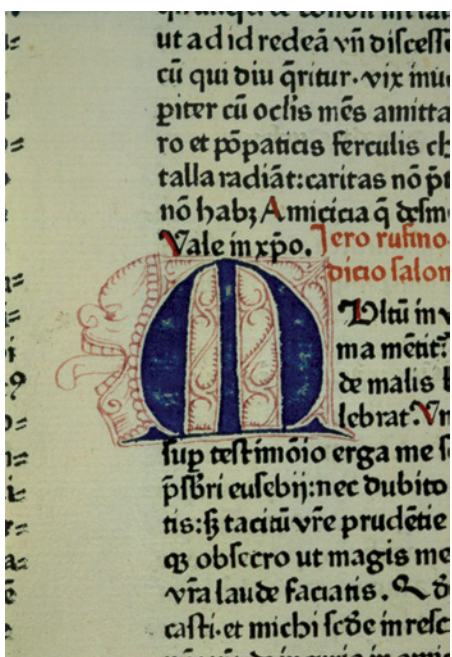 ut ad id redeã vñ discess
cũ qui diu q̃ritur. vix inu
piter cũ oclis mẽs amitta
ro et põpaticis ferculis ch
talla radiãt: caritas nõ p̃t
nõ habꝫ Amicicia q̃ desin
Vale in xp̃o. Jero rufino
dicio salom
M Vltũ in v
ma mẽtit
de malis
lebrat. Vn
sup testimõio erga me
p̃sbri eusebij: nec dubito
tis: tacitũ vr̃e prudẽtie
qꝫ obsecro ut magis me
vr̃a laude faciatis.
casti. et michi scd̃e in resc